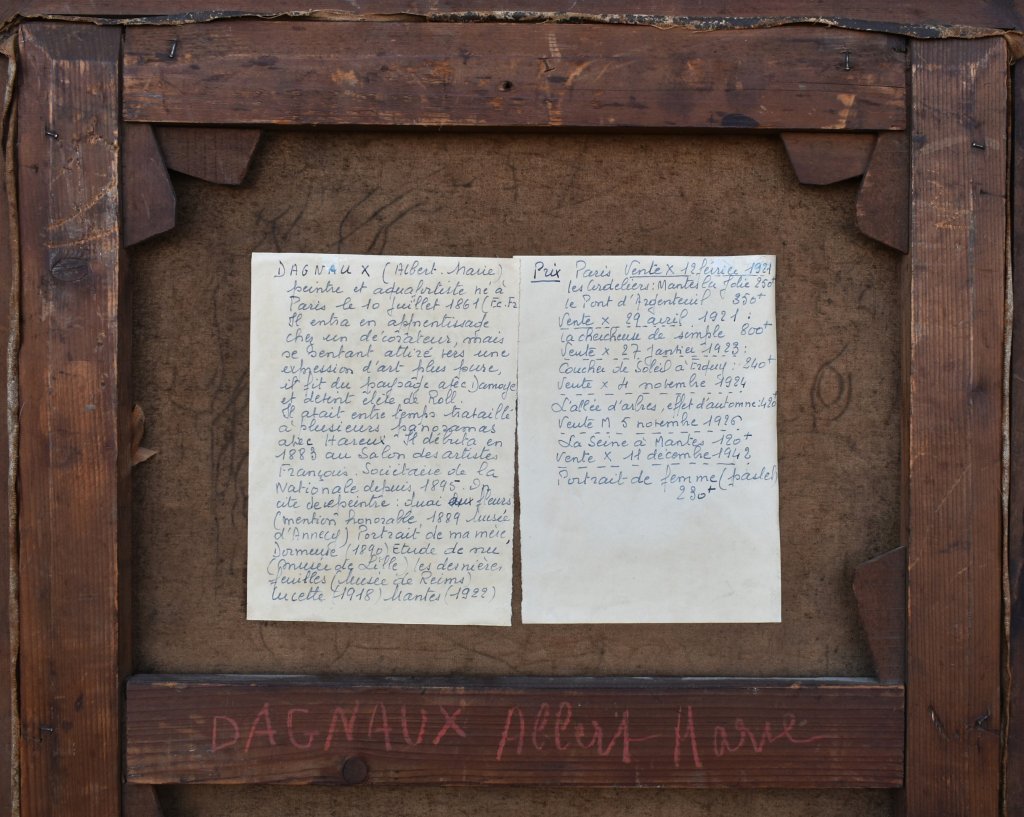 DAGNAUX (Albert-Marie)
peintre et aquafortiste né à
Paris le 10 juillet 1861 (Ec. Fr
Il entra en apprentissage
chez un décorateur, mais
se sentant attiré vers une
expression d'art plus pure,
il fit du paysage avec Damoye
et devint élève de Roll.
Il avait entre temps travaillé
à plusieurs panoramas
avec Hareux Il débuta en
1883 au Salon des artistes
Français. Sociétaire de la
Nationale depuis 1895. On
cite de ce peintre : Quai aux fleurs
(mention honorable, 1889 Musée
d'Annecy) Portrait de ma mère,
Dormeuse (1890) Etude de nu
(musée de Lille) les dernières
feuilles (Musée de Reims)
Lucette (1918) Mantes (1922)
Prix Paris Vente X 12 février 1921
les Cordeliers: Mantes la Jolie 250
le Pont d'Argenteuil 350
Vente X. 29 avril 1921 :
La chercheuse de simple 800
Vente X 27 Janvier 1923:
Coucher de Soleil à Erquy: 340
Vente X 4 novembre 1924
L'allée d'arbres, effet d'automne: 420
Vente M 5 novembre 1926
La Seine à Mantes 120
Vente X. 11 décembre 1942
Portrait de femme (pastel)
230
DAGNAUX Albert Marie